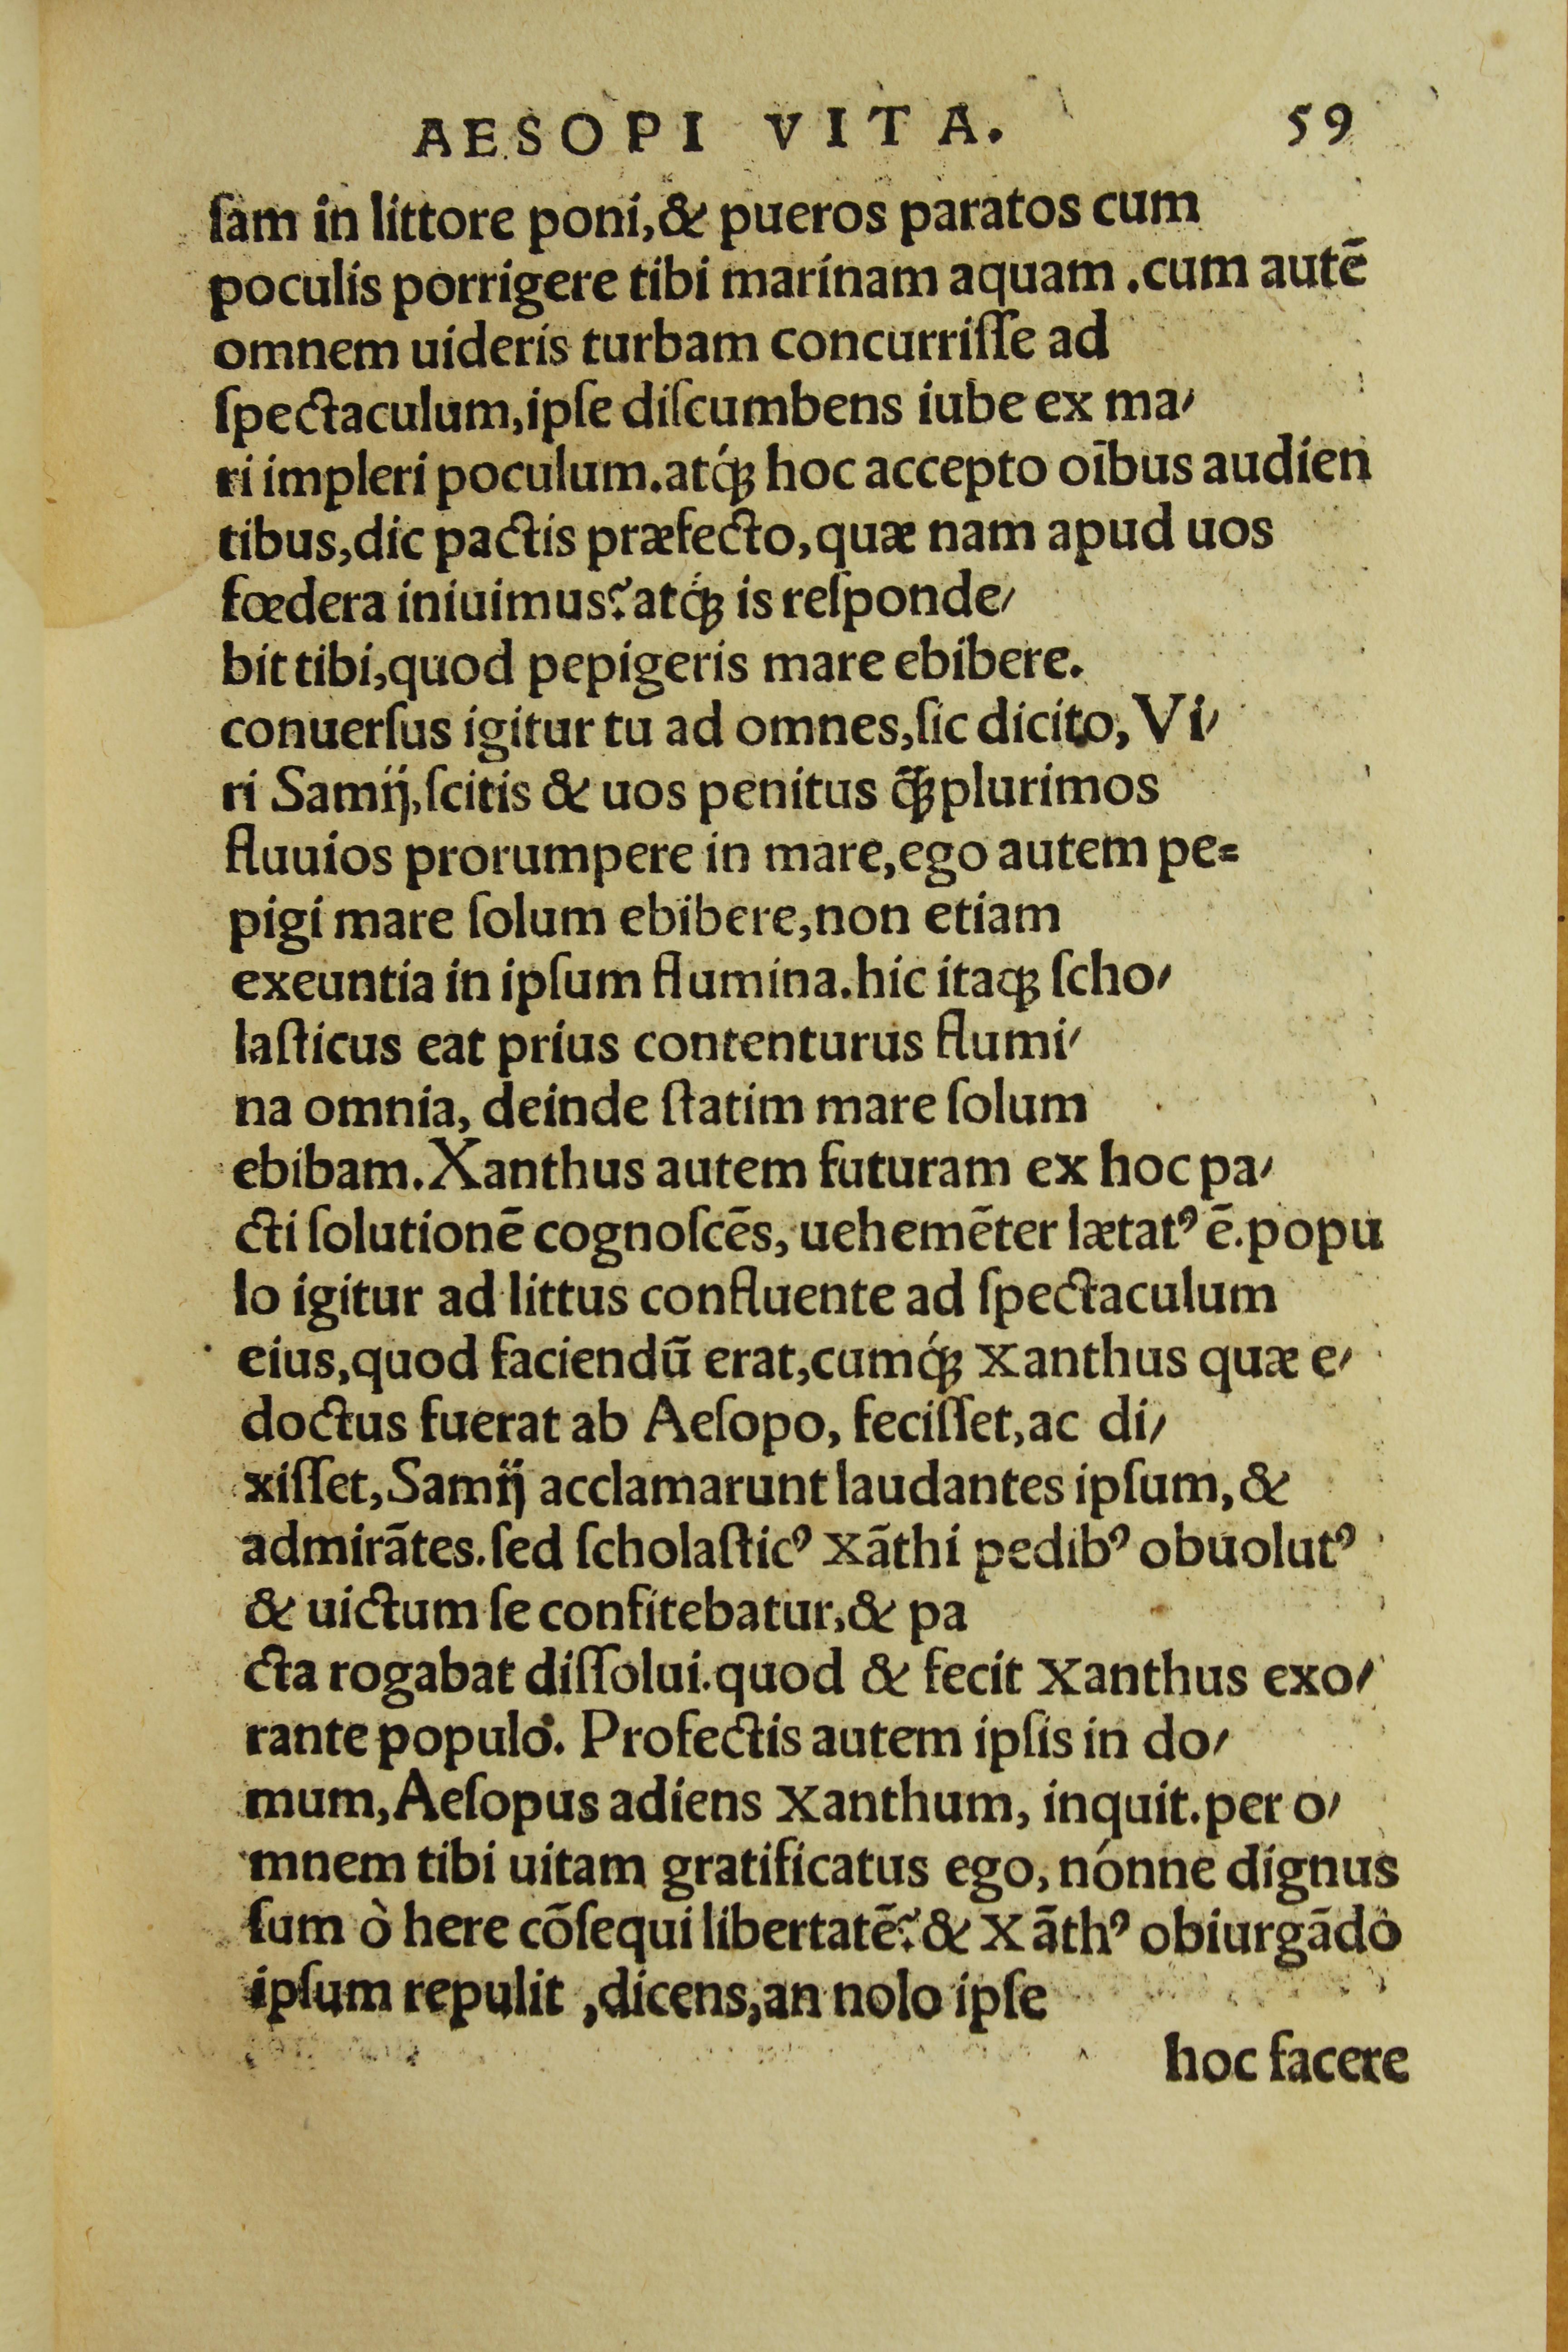 AESOPI VITA. 59
ſam in littore poni,& pueros paratos cum
poculis porrigere tibi marinam aquam .cum autē
omnem uideris turbam concurriſſe ad
ſpectaculum,ipſe diſcumbens iube ex ma/
ri impleri poculum.atq́ꝫ hoc accepto oībus audien
tibus,dic pactis præfecto,quæ nam apud uos
fœdera iniuimus?atq́ꝫ is reſponde/
bit tibi,quod pepigeris mare ebibere.
conuerſus igitur tu ad omnes,ſic dicito, Vi/
ri Samij,ſcitis & uos penitus q̃ꝫ plurimos
fluuios prorumpere in mare,ego autem pe=
pigi mare ſolum ebibere,non etiam
exeuntia in ipſum flumina.hic itaqꝫ ſcho/
laſticus eat prius contenturus flumi/
na omnia, deinde ſtatim mare ſolum
ebibam.Xanthus autem futuram ex hoc pa/
cti ſolutionē cognoſcēs, uehemēter lætatꝰ ē.popu
lo igitur ad littus confluente ad ſpectaculum
eius,quod faciendū erat,cumq́ꝫ Xanthus quæ e/
doctus fuerat ab Aeſopo, feciſſet,ac di/
xiſſet,Samij acclamarunt laudantes ipſum,&
admirātes.ſed ſcholaſticꝰ Xāthi pedibꝰ obuolutꝰ
& uictum ſe confitebatur,& pa
cta rogabat diſſolui.quod & fecit Xanthus exo/
rante populo. Profectis autem ipſis in do/
mum,Aeſopus adiens Xanthum, inquit.per o/
mnem tibi uitam gratificatus ego, nónne dignus
ſum ò here cōſequi libertatē?& Xāthꝰ obiurgādo
ipſum repulit ,dicens,an nolo ipſe
hoc facere